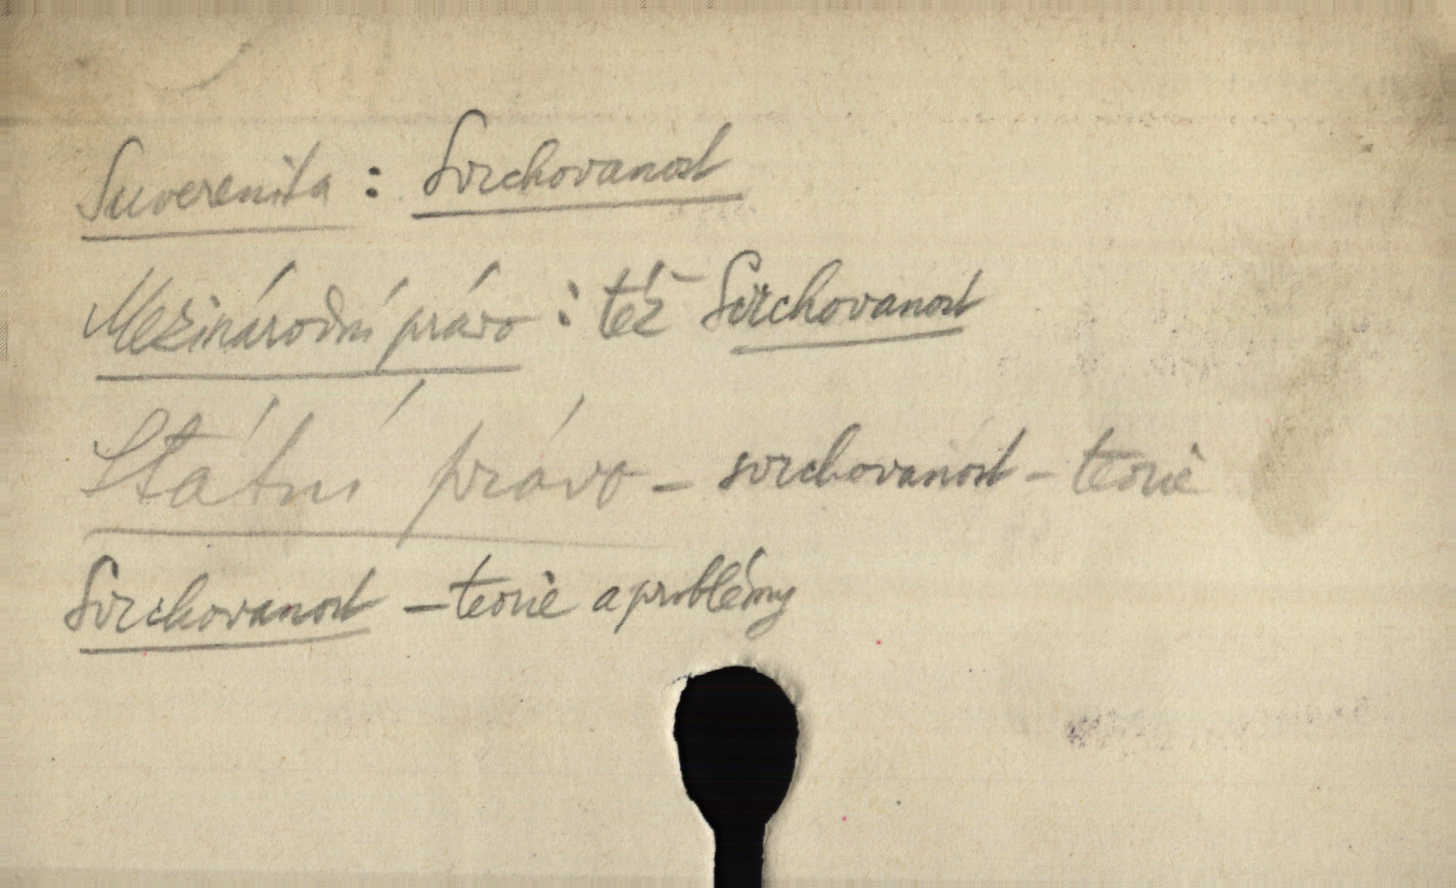 Suverenita : Svrchovanost
Mezinárodní právo : též Svrchovanost
Státní právo - svrchovanost - teorie
Svrchovanost - teorie a problémy